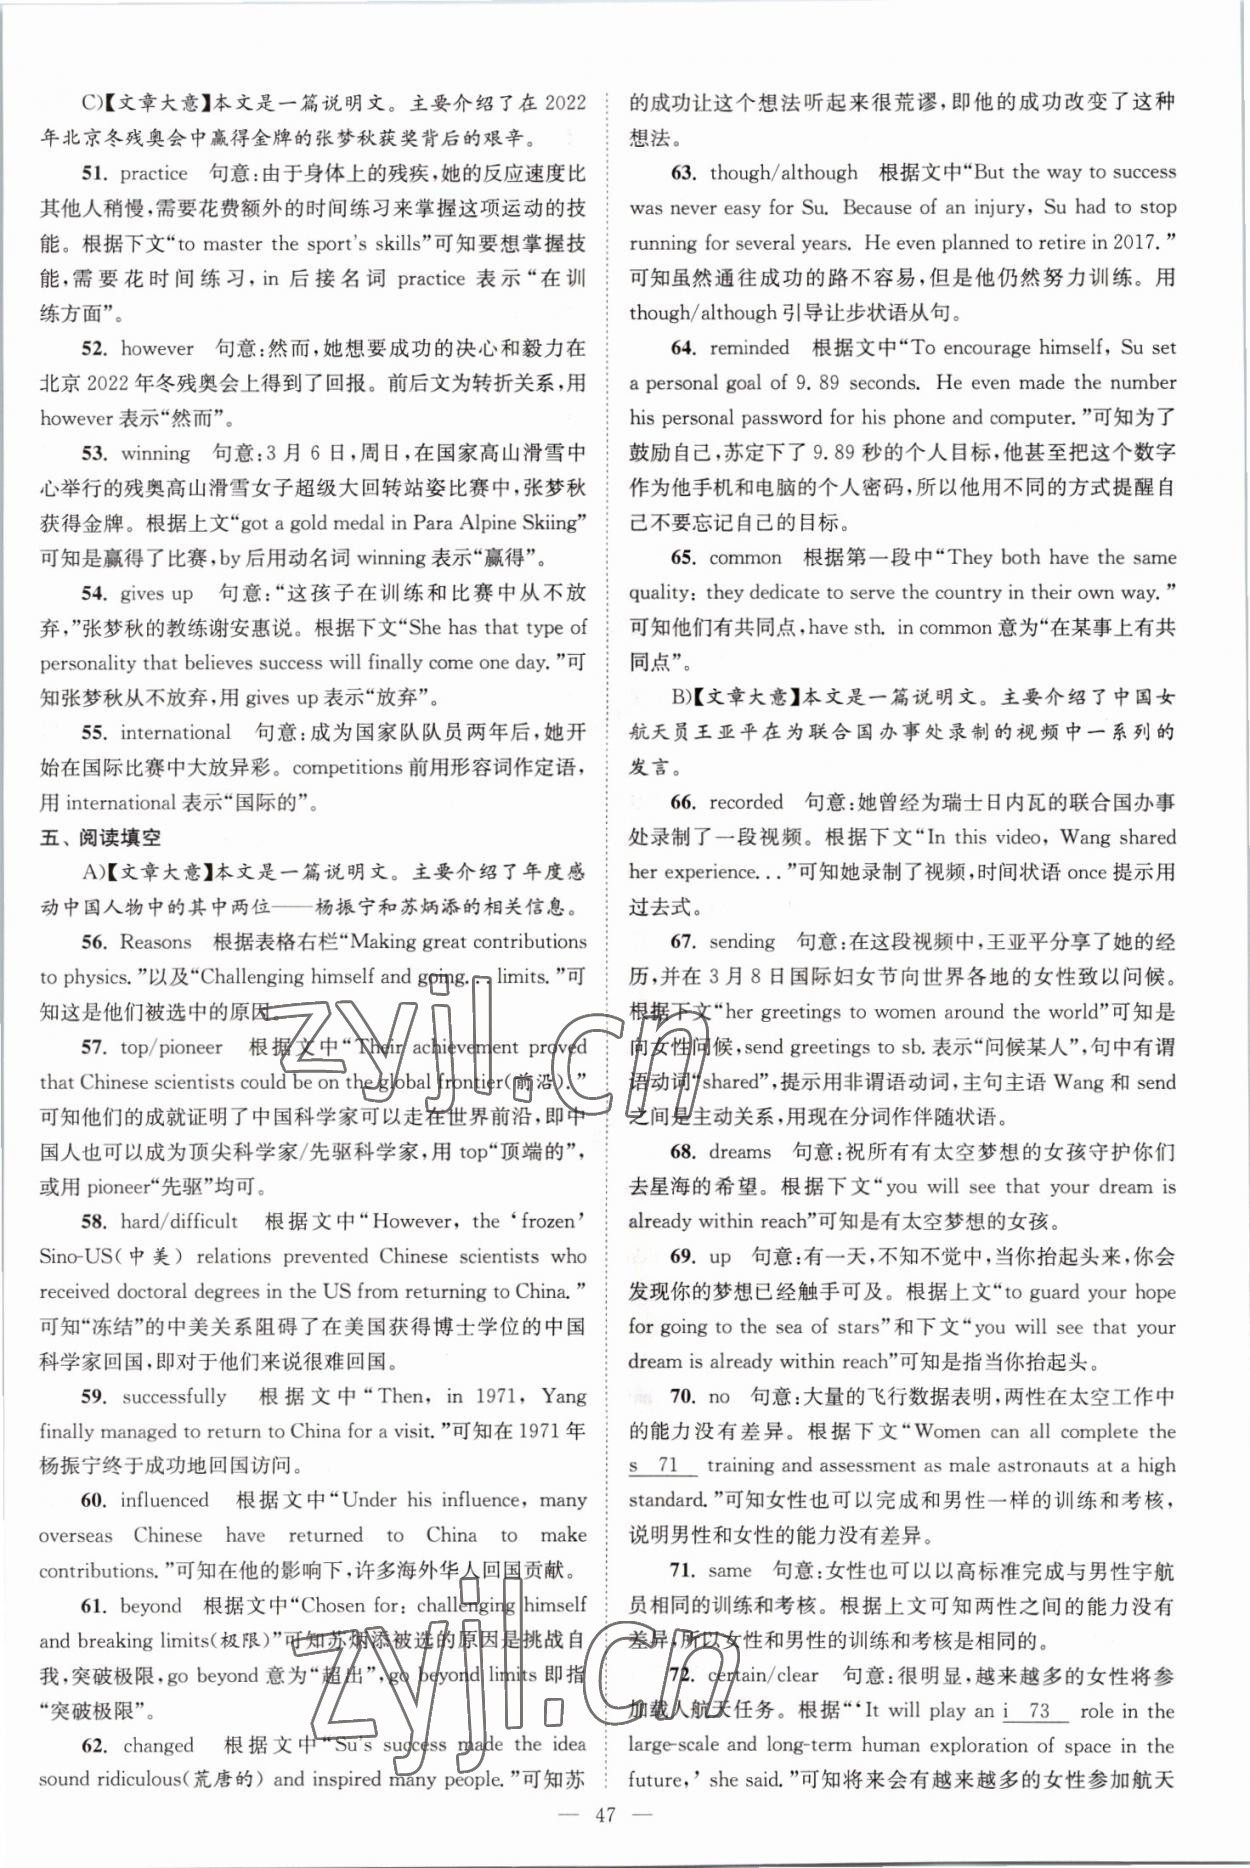 C)【文章大意】本文是一篇说明文。主要介绍了在 2022
年北京冬残奥会中赢得金牌的张梦秋获奖背后的艰辛。
51. practice 句意:由于身体上的残疾,她的反应速度比
其他人稍慢,需要花费额外的时间练习来掌握这项运动的技
能。根据下文“to master the sport's skills”可知要想掌握技
能,需要花时间练习,in 后接名词 practice 表示“在训
练方面”。
52. however 句意:然而,她想要成功的决心和毅力在
北京 2022 年冬残奥会上得到了回报。前后文为转折关系,用
however 表示“然而”。
53. winning 句意:3 月 6 日,周日,在国家高山滑雪中
心举行的残奥高山滑雪女子超级大回转站姿比赛中,张梦秋
获得金牌。根据上文“got a gold medal in Para Alpine Skiing”
可知是赢得了比赛,by 后用动名词 winning 表示“赢得”。
54. gives up 句意:“这孩子在训练和比赛中从不放
弃,”张梦秋的教练谢安惠说。根据下文“She has that type of
personality that believes success will finally come one day. ”可
知张梦秋从不放弃,用 gives up 表示“放弃”。
55. international 句意:成为国家队队员两年后,她开
始在国际比赛中大放异彩。competitions 前用形容词作定语,
用 international 表示“国际的”。
五、阅读填空
A)【文章大意】本文是一篇说明文。主要介绍了年度感
动中国人物中的其中两位——杨振宁和苏炳添的相关信息。
56. Reasons 根据表格右栏“Making great contributions
to physics. ”以及“Challenging himself and going. . . limits. ”可
知这是他们被选中的原因。
57. top/pioneer 根据文中“Their achievement proved
that Chinese scientists could be on the global frontier(前沿). ”
可知他们的成就证明了中国科学家可以走在世界前沿,即中
国人也可以成为顶尖科学家/先驱科学家,用 top“顶端的”,
或用 pioneer“先驱”均可。
58. hard/difficult 根据文中“However, the ‘frozen’
Sino-US(中美) relations prevented Chinese scientists who
received doctoral degrees in the US from returning to China. ”
可知“冻结”的中美关系阻碍了在美国获得博士学位的中国
科学家回国,即对于他们来说很难回国。
59. successfully 根据文中“Then, in 1971, Yang
finally managed to return to China for a visit. ”可知在 1971 年
杨振宁终于成功地回国访问。
60. influenced 根据文中“Under his influence, many
overseas Chinese have returned to China to make
contributions. ”可知在他的影响下,许多海外华人回国贡献。
61. beyond 根据文中“Chosen for: challenging himself
and breaking limits(极限)”可知苏炳添被选的原因是挑战自
我,突破极限,go beyond 意为“超出”,go beyond limits 即指
“突破极限”。
62. changed 根据文中“Su's success made the idea
sound ridiculous(荒唐的) and inspired many people. ”可知苏
的成功让这个想法听起来很荒谬,即他的成功改变了这种
想法。
63. though/although 根据文中“But the way to success
was never easy for Su. Because of an injury, Su had to stop
running for several years. He even planned to retire in 2017. ”
可知虽然通往成功的路不容易,但是他仍然努力训练。用
though/although 引导让步状语从句。
64. reminded 根据文中“To encourage himself, Su set
a personal goal of 9. 89 seconds. He even made the number
his personal password for his phone and computer. ”可知为了
鼓励自己,苏定下了 9. 89 秒的个人目标,他甚至把这个数字
作为他手机和电脑的个人密码,所以他用不同的方式提醒自
己不要忘记自己的目标。
65. common 根据第一段中“They both have the same
quality: they dedicate to serve the country in their own way. ”
可知他们有共同点,have sth. in common 意为“在某事上有共
同点”。
B)【文章大意】本文是一篇说明文。主要介绍了中国女
航天员王亚平在为联合国办事处录制的视频中一系列的
发言。
66. recorded 句意:她曾经为瑞士日内瓦的联合国办事
处录制了一段视频。根据下文“In this video, Wang shared
her experience. . . ”可知她录制了视频,时间状语 once 提示用
过去式。
67. sending 句意:在这段视频中,王亚平分享了她的经
历,并在 3 月 8 日国际妇女节向世界各地的女性致以问候。
根据下文“her greetings to women around the world”可知是
向女性问候,send greetings to sb. 表示“问候某人”,句中有谓
语动词“shared”,提示用非谓语动词,主句主语 Wang 和 send
之间是主动关系,用现在分词作伴随状语。
68. dreams 句意:祝所有有太空梦想的女孩守护你们
去星海的希望。根据下文“you will see that your dream is
already within reach”可知是有太空梦想的女孩。
69. up 句意:有一天,不知不觉中,当你抬起头来,你会
发现你的梦想已经触手可及。根据上文“to guard your hope
for going to the sea of stars”和下文“you will see that your
dream is already within reach”可知是指当你抬起头。
70. no 句意:大量的飞行数据表明,两性在太空工作中
的能力没有差异。根据下文“Women can all complete the
s 71 training and assessment as male astronauts at a high
standard. ”可知女性也可以完成和男性一样的训练和考核,
说明男性和女性的能力没有差异。
71. same 句意:女性也可以以高标准完成与男性宇航
员相同的训练和考核。根据上文可知两性之间的能力没有
差异,所以女性和男性的训练和考核是相同的。
72. certain/clear 句意:很明显,越来越多的女性将参
加载人航天任务。根据“‘It will play an i 73 role in the
large-scale and long-term human exploration of space in the
future,’ she said. ”可知将来会有越来越多的女性参加航天
— 47 —
zyjl.cn
zyjl.cn